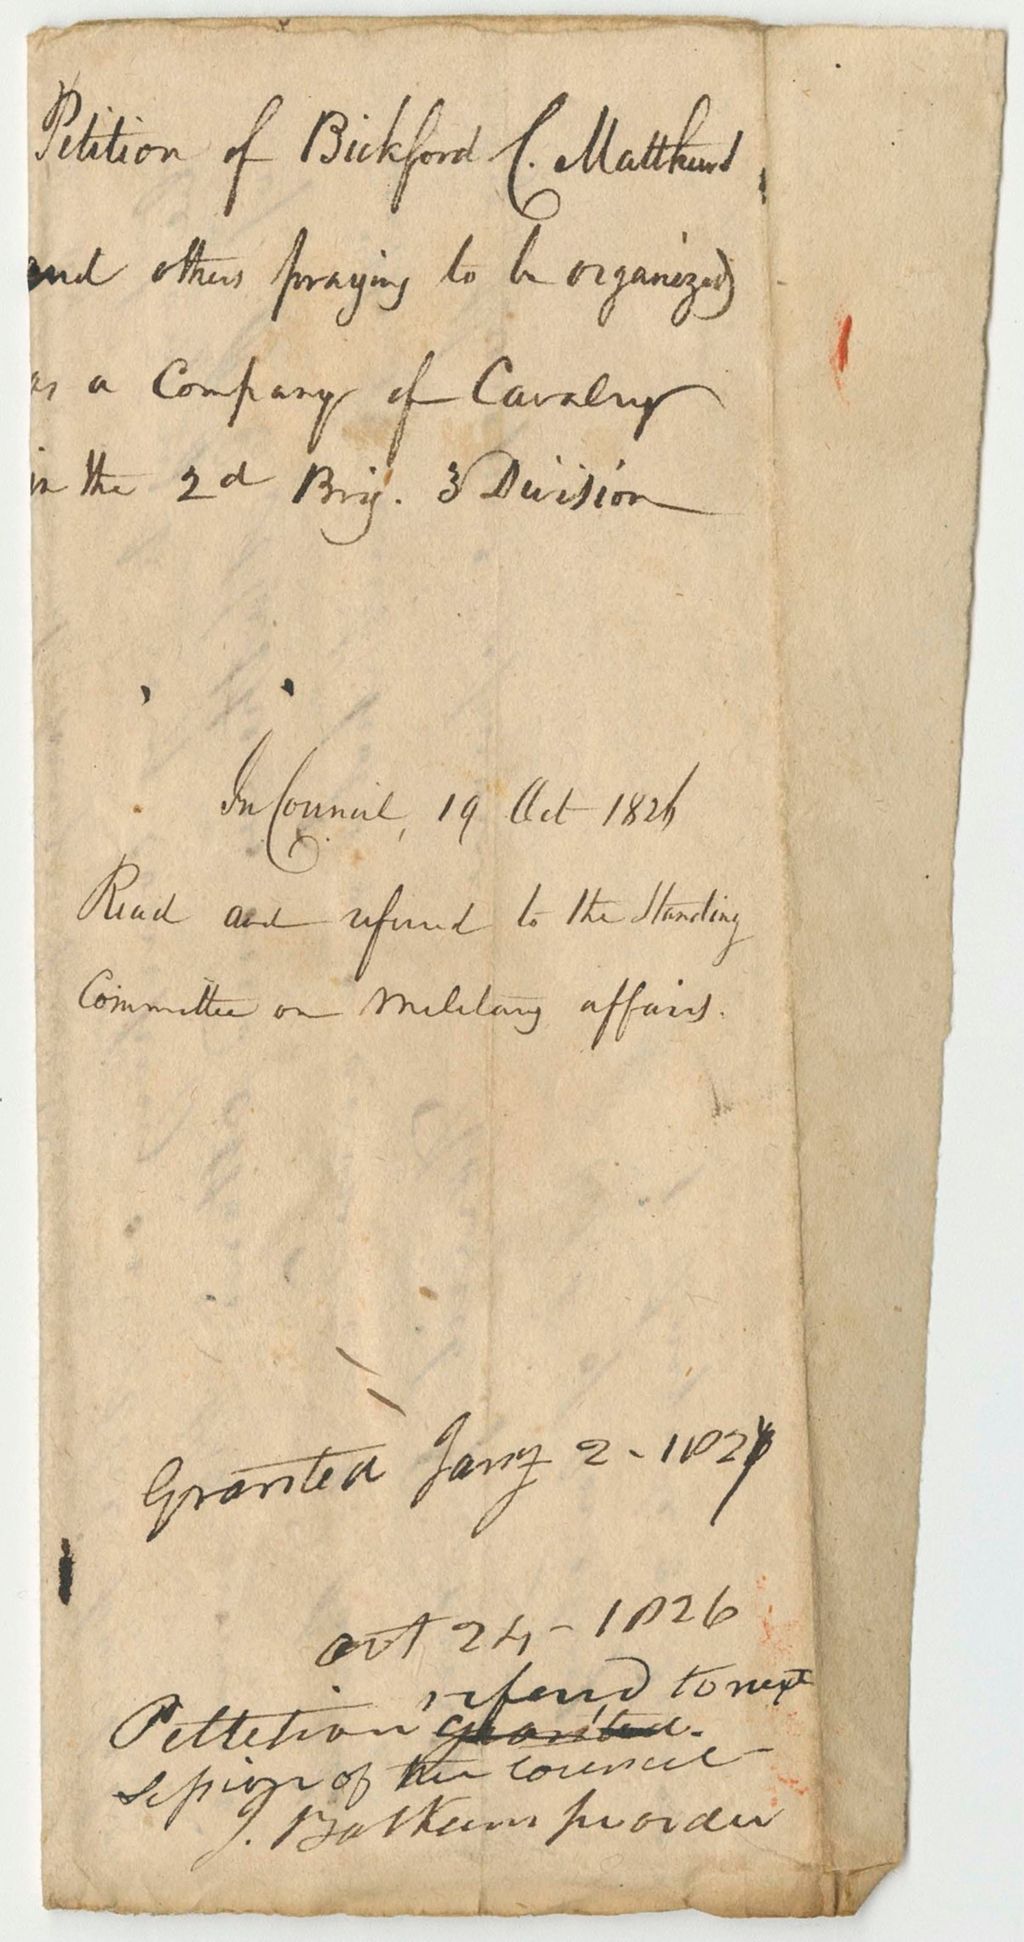 Petition of Bickford C. Matthews
and others praying to be organized
as a Company of Cavalry
in the 2d Brig. 3 Division
In Council, 19 Oct 1826
Read and referred to the Standing
Committee on Military affairs.
Granted Jany 2 - 1827
oct 24 - 1826
refered to next
Pettetion granted.
session of the Council
J. Batkum pr order